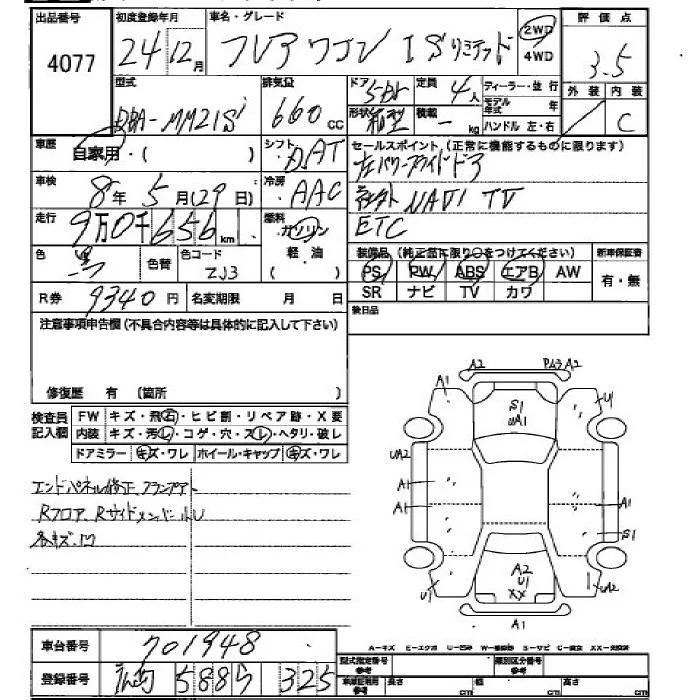 出品番号 初度登録年月 車名・グレード 2WD 4WD 評価点
4077 24年 12月 フレアワゴン ISリミテッド 3.5
型式 排気量 ドア 5 定員 4人 ディーラー・並行 外装 内装
DBA-MM21S 660cc 形状 箱型 積載 - kg モデル年式 年 C
ハンドル 左・右
車歴 自家用・( ) シフト DAT セールスポイント(正常に機能するものに限ります)
車検 8年 5月(29日) 冷房 AAC 左パワースライドドア
社外 NAVI TV
走行 9万0千656km 燃料 ガソリン 軽油 ETC
色 黒 色替 色コード ZJ3 装備品(純正品に限り○をつけてください) 新車保証書
PS PW ABS エアB AW 有・無
R券 9340円 名変期限 月 日 SR ナビ TV カワ
注意事項申告欄(不具合内容等は具体的に記入して下さい) 後日品
修復歴 有 〔箇所 〕
検査員記入欄 FW キズ・飛石・ヒビ割・リペア跡・X要
内装 キズ・汚レ・コゲ・穴・スレ・ヘタリ・破レ
ドアミラー キズ・ワレ ホイール・キャップ キズ・ワレ
エンドパネル修正
Rフロア、Rサイドメンバー
各キズ、凹
A2 PA3 A2
A1 S1 UA1 U1
UA2
A1 A1
A1 S1
U1 A2 U1 XX UA2
A1
車台番号 701948
登録番号 5885 325
A-キズ
型式指定番号 参考 類別区分番号 参考
長さ cm 幅 cm 高さ cm